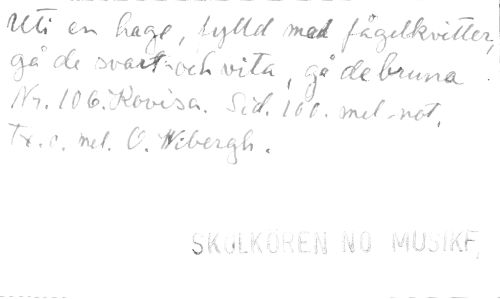 Uti en hage, fylld med fågelkvitter,
gå de svart-och vita, gå de bruna
Nr. 106. Kovisa. Sid. 100. mel-not.
Tx. o. mel. O. Wibergh.
SKOLKÖREN NO MUSIKF,